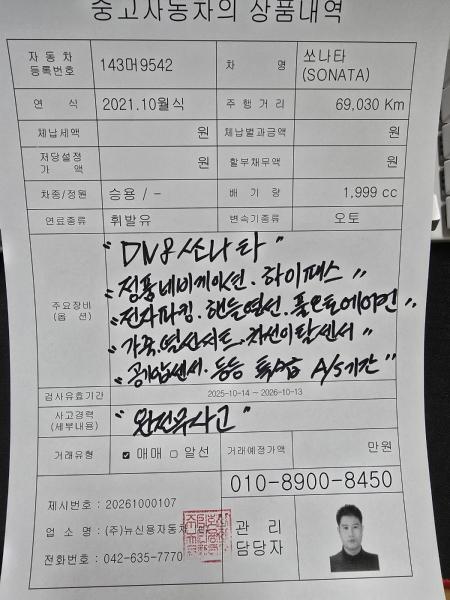 중고자동차의 상품내역
자동차 등록번호 143머9542 차 명 쏘나타 (SONATA)
연 식 2021.10월식 주행거리 69,030 Km
체납세액 원 체납벌과금액 원
저당설정 가 액 원 할부채무액 원
차종/정원 승용 / - 배 기 량 1,999 cc
연료종류 휘발유 변속기종류 오토
주요장비 (옵 션)
"DN8 쏘나타"
"정품네비게이션. 하이패스"
"전자파킹. 핸들열선. 풀오토에어컨"
"가죽.열선시트.차선이탈센서"
"공기압센서. 등등 특A급 A/S기간"
검사유효기간 2025-10-14 ~ 2026-10-13
사고경력 (세부내용) "완전무사고"
거래유형 매매 알선 거래예정가액 만원
010-8900-8450
제시번호 : 20261000107
업 소 명 : (주)뉴신용자동차
전화번호 : 042-635-7770
관 리 담당자